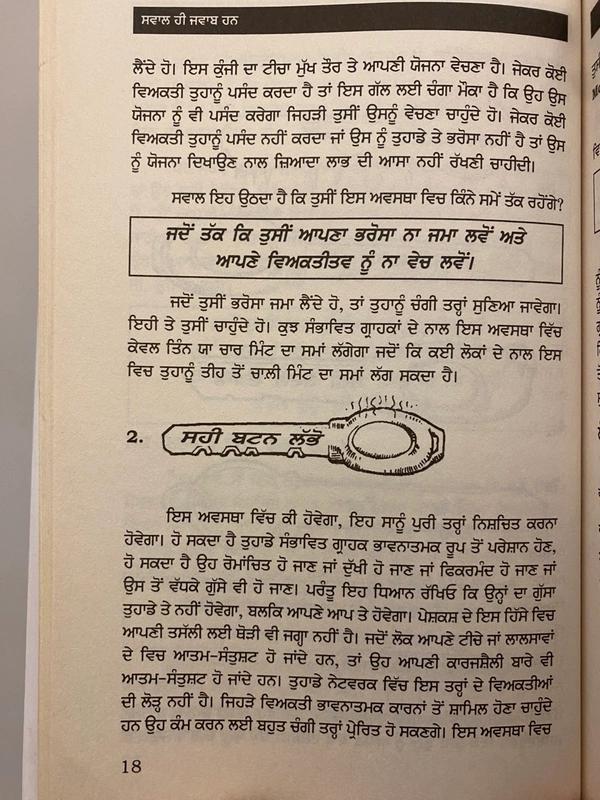 ਸਵਾਲ ਹੀ ਜਵਾਬ ਹਨ
ਲੈਂਦੇ ਹੋ। ਇਸ ਕੁੰਜੀ ਦਾ ਟੀਚਾ ਮੁੱਖ ਤੌਰ ਤੇ ਆਪਣੀ ਯੋਜਨਾ ਵੇਚਣਾ ਹੈ। ਜੇਕਰ ਕੋਈ
ਵਿਅਕਤੀ ਤੁਹਾਨੂੰ ਪਸੰਦ ਕਰਦਾ ਹੈ ਤਾਂ ਇਸ ਗੱਲ ਲਈ ਚੰਗਾ ਮੌਕਾ ਹੈ ਕਿ ਉਹ ਉਸ
ਯੋਜਨਾ ਨੂੰ ਵੀ ਪਸੰਦ ਕਰੇਗਾ ਜਿਹੜੀ ਤੁਸੀਂ ਉਸਨੂੰ ਵੇਚਣਾ ਚਾਹੁੰਦੇ ਹੋ। ਜੇਕਰ ਕੋਈ
ਵਿਅਕਤੀ ਤੁਹਾਨੂੰ ਪਸੰਦ ਨਹੀਂ ਕਰਦਾ ਜਾਂ ਉਸ ਨੂੰ ਤੁਹਾਡੇ ਤੇ ਭਰੋਸਾ ਨਹੀਂ ਹੈ ਤਾਂ ਉਸ
ਨੂੰ ਯੋਜਨਾ ਦਿਖਾਉਣ ਨਾਲ ਜ਼ਿਆਦਾ ਲਾਭ ਦੀ ਆਸਾ ਨਹੀਂ ਰੱਖਣੀ ਚਾਹੀਦੀ।
ਸਵਾਲ ਇਹ ਉਠਦਾ ਹੈ ਕਿ ਤੁਸੀਂ ਇਸ ਅਵਸਥਾ ਵਿਚ ਕਿੰਨੇ ਸਮੇਂ ਤੱਕ ਰਹੋਂਗੇ?
ਜਦੋਂ ਤੱਕ ਕਿ ਤੁਸੀਂ ਆਪਣਾ ਭਰੋਸਾ ਨਾ ਜਮਾ ਲਵੋਂ ਅਤੇ
ਆਪਣੇ ਵਿਅਕਤੀਤਵ ਨੂੰ ਨਾ ਵੇਚ ਲਵੋਂ।
ਜਦੋਂ ਤੁਸੀਂ ਭਰੋਸਾ ਜਮਾ ਲੈਂਦੇ ਹੋ, ਤਾਂ ਤੁਹਾਨੂੰ ਚੰਗੀ ਤਰ੍ਹਾਂ ਸੁਣਿਆ ਜਾਵੇਗਾ।
ਇਹੀ ਤੇ ਤੁਸੀਂ ਚਾਹੁੰਦੇ ਹੋ। ਕੁਝ ਸੰਭਾਵਿਤ ਗ੍ਰਾਹਕਾਂ ਦੇ ਨਾਲ ਇਸ ਅਵਸਥਾ ਵਿੱਚ
ਕੇਵਲ ਤਿੰਨ ਯਾ ਚਾਰ ਮਿੰਟ ਦਾ ਸਮਾਂ ਲੱਗੇਗਾ ਜਦੋਂ ਕਿ ਕਈ ਲੋਕਾਂ ਦੇ ਨਾਲ ਇਸ
ਵਿਚ ਤੁਹਾਨੂੰ ਤੀਹ ਤੋਂ ਚਾਲ਼ੀ ਮਿੰਟ ਦਾ ਸਮਾਂ ਲੱਗ ਸਕਦਾ ਹੈ।
2. ਸਹੀ ਬਟਨ ਲੱਭੋ
ਇਸ ਅਵਸਥਾ ਵਿੱਚ ਕੀ ਹੋਵੇਗਾ, ਇਹ ਸਾਨੂੰ ਪੁਰੀ ਤਰ੍ਹਾਂ ਨਿਸ਼ਚਿਤ ਕਰਨਾ
ਹੋਵੇਗਾ। ਹੋ ਸਕਦਾ ਹੈ ਤੁਹਾਡੇ ਸੰਭਾਵਿਤ ਗ੍ਰਾਹਕ ਭਾਵਨਾਤਮਕ ਰੂਪ ਤੋਂ ਪਰੇਸ਼ਾਨ ਹੋਣ,
ਹੋ ਸਕਦਾ ਹੈ ਉਹ ਰੋਮਾਂਚਿਤ ਹੋ ਜਾਣ ਜਾਂ ਦੁੱਖੀ ਹੋ ਜਾਣ ਜਾਂ ਫਿਕਰਮੰਦ ਹੋ ਜਾਣ ਜਾਂ
ਉਸ ਤੋਂ ਵੱਧਕੇ ਗੁੱਸੇ ਵੀ ਹੋ ਜਾਣ। ਪਰੰਤੂ ਇਹ ਧਿਆਨ ਰੱਖਿਓ ਕਿ ਉਨ੍ਹਾਂ ਦਾ ਗੁੱਸਾ
ਤੁਹਾਡੇ ਤੇ ਨਹੀਂ ਹੋਵੇਗਾ, ਬਲਕਿ ਆਪਣੇ ਆਪ ਤੇ ਹੋਵੇਗਾ। ਪੇਸ਼ਕਸ਼ ਦੇ ਇਸ ਹਿੱਸੇ ਵਿਚ
ਆਪਣੀ ਤਸੱਲੀ ਲਈ ਥੋੜੀ ਵੀ ਜਗ੍ਹਾ ਨਹੀਂ ਹੈ। ਜਦੋਂ ਲੋਕ ਆਪਣੇ ਟੀਚੇ ਜਾਂ ਲਾਲਸਾਵਾਂ
ਦੇ ਵਿਚ ਆਤਮ-ਸੰਤੁਸ਼ਟ ਹੋ ਜਾਂਦੇ ਹਨ, ਤਾਂ ਉਹ ਆਪਣੀ ਕਾਰਜਸ਼ੈਲੀ ਬਾਰੇ ਵੀ
ਆਤਮ-ਸੰਤੁਸ਼ਟ ਹੋ ਜਾਂਦੇ ਹਨ। ਤੁਹਾਡੇ ਨੇਟਵਰਕ ਵਿੱਚ ਇਸ ਤਰ੍ਹਾਂ ਦੇ ਵਿਅਕਤੀਆਂ
ਦੀ ਲੋੜ੍ਹ ਨਹੀਂ ਹੈ। ਜਿਹੜੇ ਵਿਅਕਤੀ ਭਾਵਨਾਤਮਕ ਕਾਰਨਾਂ ਤੋਂ ਸ਼ਾਮਿਲ ਹੋਣਾ ਚਾਹੁੰਦੇ
ਹਨ ਉਹ ਕੰਮ ਕਰਨ ਲਈ ਬਹੁਤ ਚੰਗੀ ਤਰ੍ਹਾਂ ਪ੍ਰੇਰਿਤ ਹੋ ਸਕਣਗੇ। ਇਸ ਅਵਸਥਾ ਵਿਚ
18